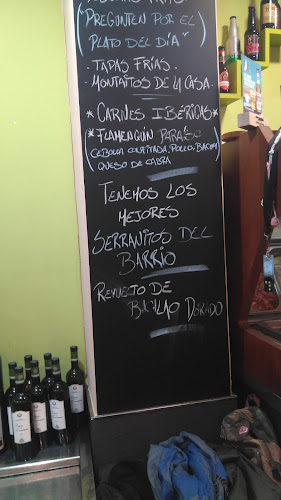 "PREGUNTEN POR EL
PLATO DEL DÍA"
TAPAS FRÍAS.
MONTAITOS DE LA CASA.
* CARNES IBERICAS *
* FLAMENQUÍN PARAÍSO
(CEBOLLA CONFITADA, POLLO, BACON
QUESO DE CABRA
TENEMOS LOS
MEJORES
SERRANITOS DEL
BARRIO
REVUELTO DE
BACALAO DORADO